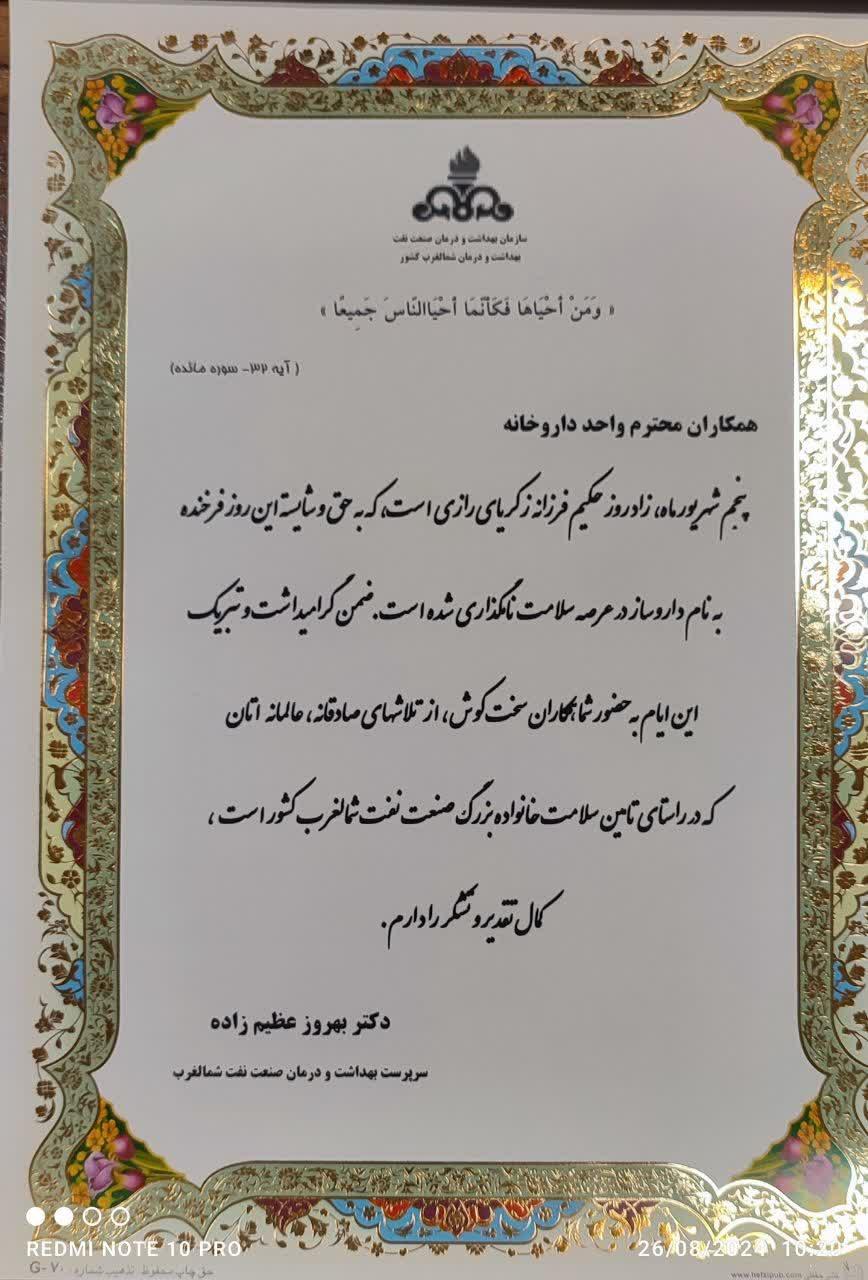 سازمان بهداشت و درمان صنعت نفت
بهداشت و درمان شمالغرب کشور
« وَمَنْ أحْيَاهَا فَكَأنَّمَا أحْيَاالنَّاسَ جَمِيعًا »
( آیه ۳۲- سوره مائده)
همکاران محترم واحد داروخانه
پنجم شهریور ماه، زادروز حکیم فرزانه زکریای رازی است، که به حق و شایسته این روز فرخنده
به نام داروساز در عرصه سلامت نامگذاری شده است. ضمن گرامیداشت و تبریک
این ایام به حضور شما همکاران سخت کوش، از تلاشهای صادقانه، عالمانه اتان
که در راستای تامین سلامت خانواده بزرگ صنعت نفت شمالغرب کشور است ،
کمال تقدیر و تشکر را دارم.
دکتر بهروز عظیم زاده
سرپرست بهداشت و درمان صنعت نفت شمالغرب
REDMI NOTE 10 PRO
26/08/2024 10:20
حق چاپ محفوظ تذهیب شماره G-۷۰
www.hefzipub.com